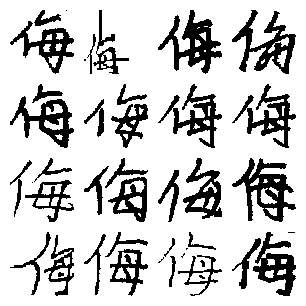 侮侮侮侮
侮侮侮侮
侮侮侮侮
侮侮侮侮